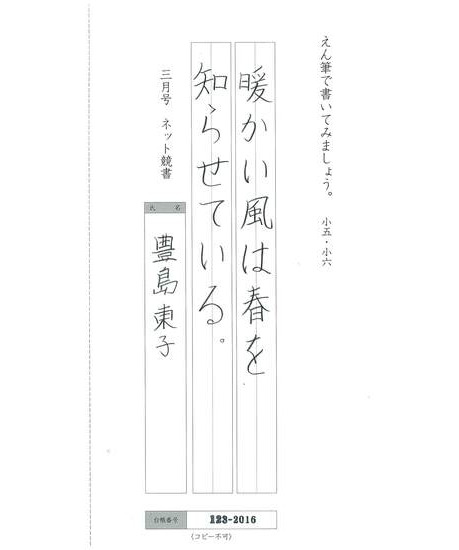 えん筆で書いてみましょう。 小五・小六
暖かい風は春を
知らせている。
三月号 ネット競書
氏名
豊島東子
台帳番号 123-2016
〈コピー不可〉